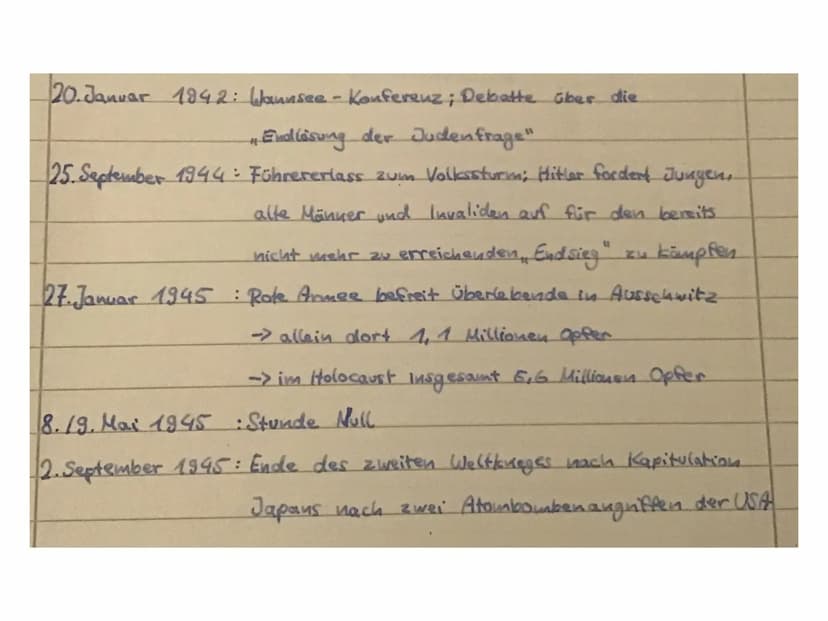 20. Januar 1942: Wannsee-Konferenz; Debatte über die
"Endlösung der Judenfrage"
25. September 1944: Führererlass zum Volkssturm; Hitler fordert Jungen,
alte Männer und Invaliden auf für den bereits
nicht mehr zu erreichenden "Endsieg" zu kämpfen
27. Januar 1945: Rote Armee befreit Überlebende in Ausschwitz
-> allein dort 1,1 Millionen Opfer
-> im Holocaust insgesamt 5,6 Millionen Opfer
8./9. Mai 1945: Stunde Null
2. September 1945: Ende des zweiten Weltkrieges nach Kapitulation
Japans nach zwei Atombombenangriffen der USA